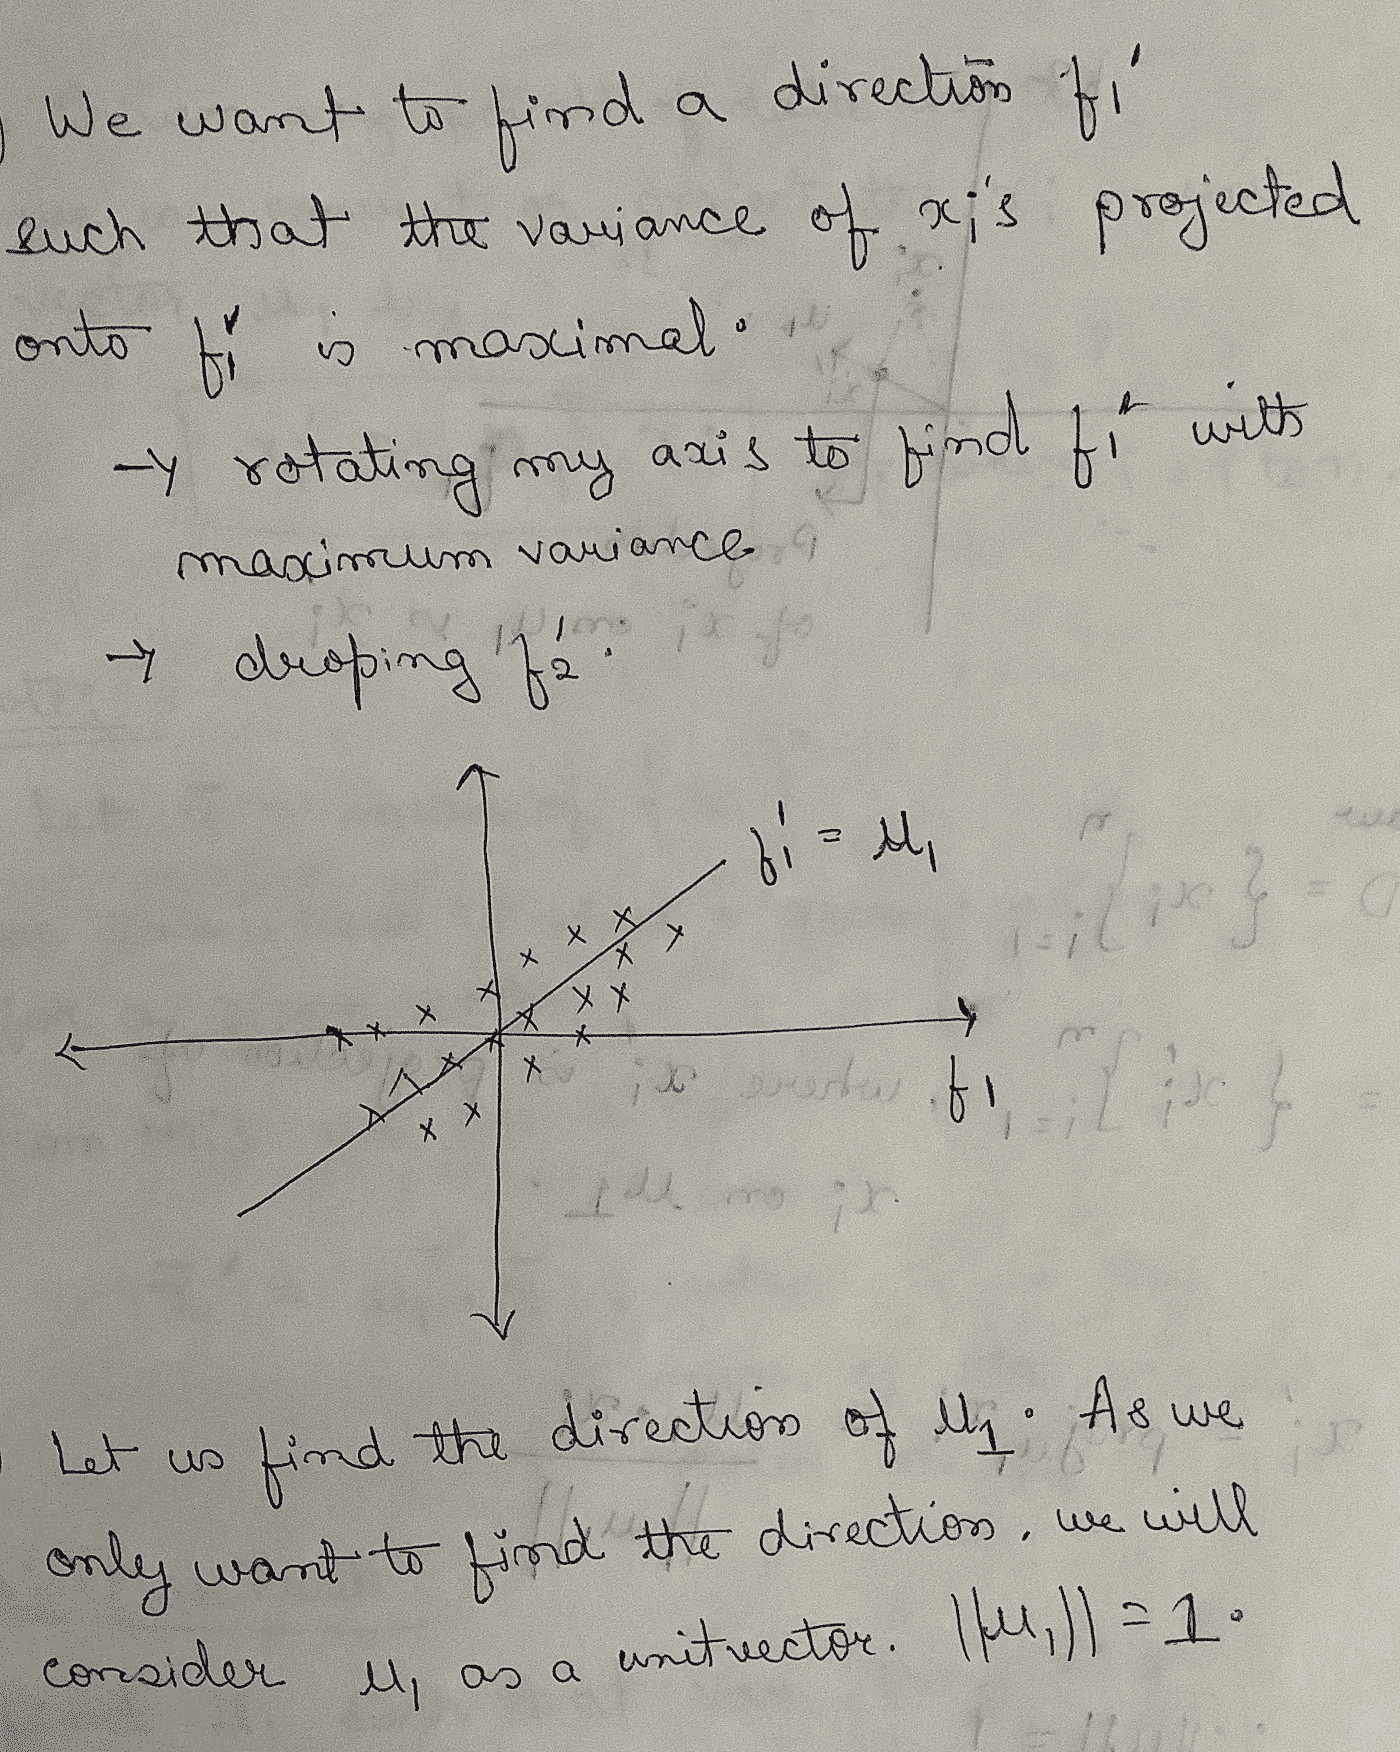 We want to find a direction f₁'
such that the variance of xᵢ's projected
onto f₁' is maximal.
→ rotating my axis to find f₁' with
maximum variance
→ droping f₂'.
f₁' = u₁
f₁
Let us find the direction of u₁. As we
only want to find the direction, we will
consider u₁ as a unitvector. ||u₁|| = 1.